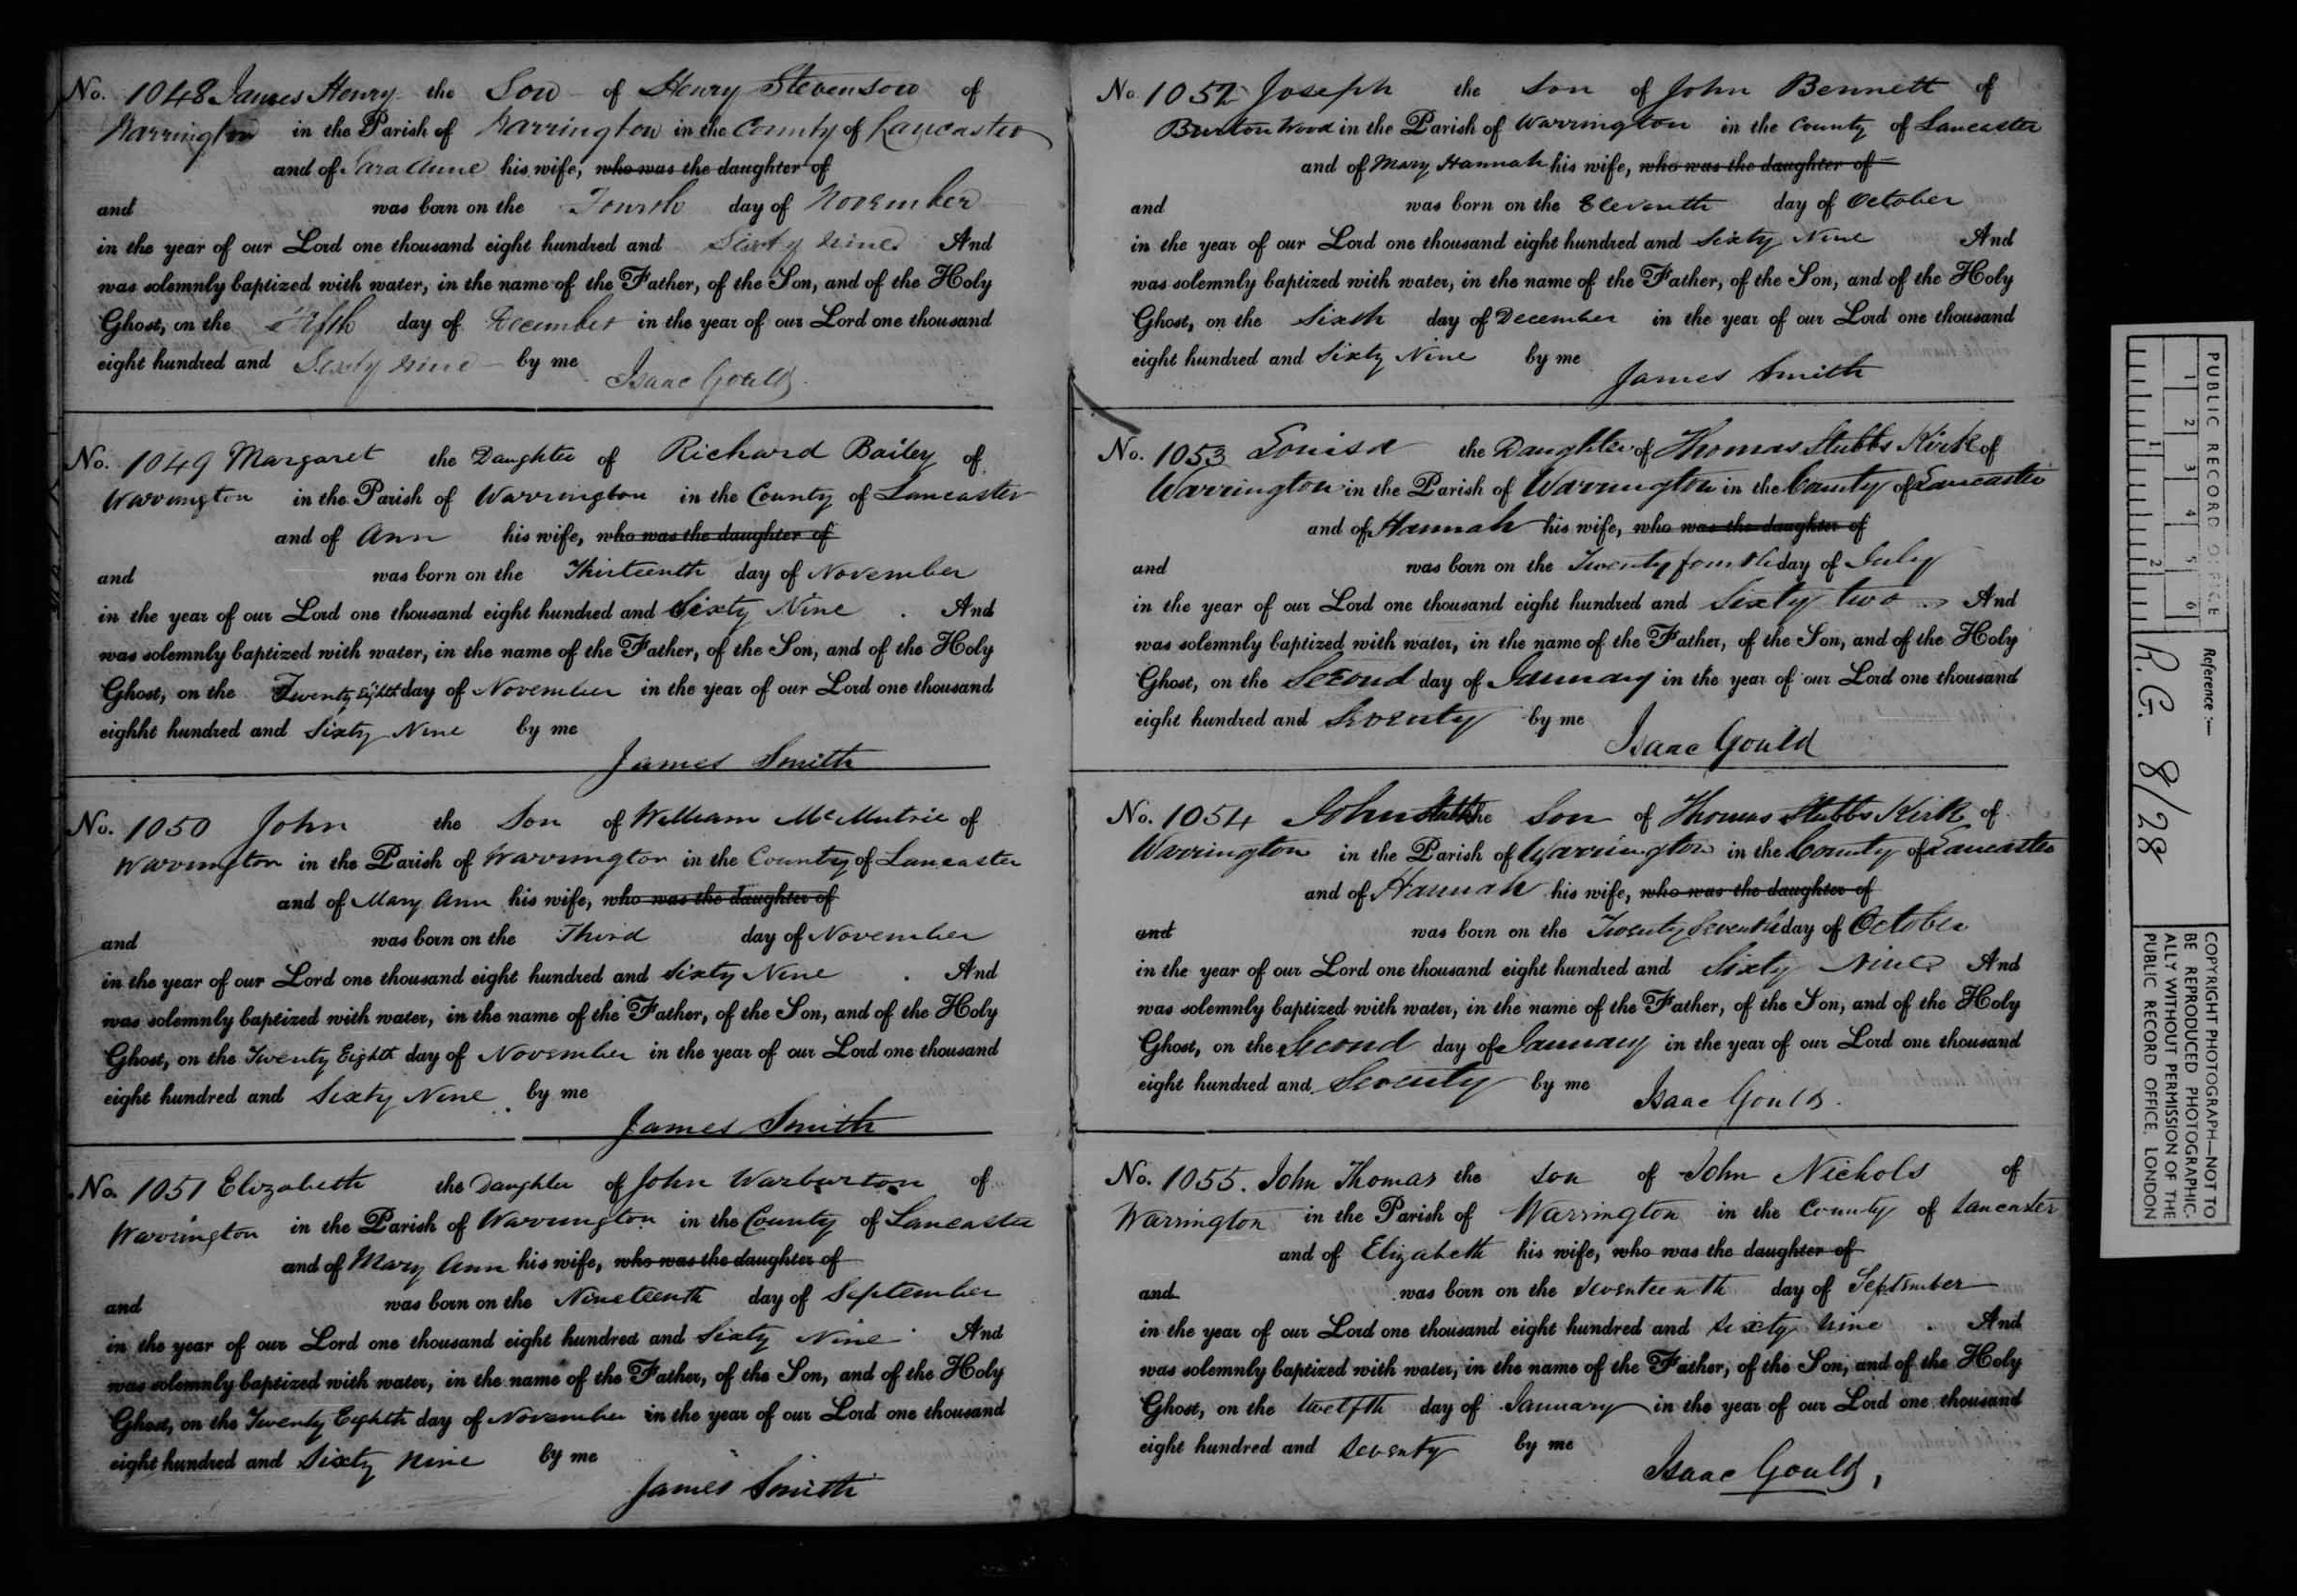 No. 1048 James Henry the Son of Henry Stevenson of
Warrington in the Parish of Warrington in the County of Lancaster
and of Sara Anne his wife, who was the daughter of
and was born on the Fourth day of November
in the year of our Lord one thousand eight hundred and Sixty nine And
was solemnly baptized with water, in the name of the Father, of the Son, and of the Holy
Ghost, on the Fifth day of December in the year of our Lord one thousand
eight hundred and Sixty nine by me
Isaac Gould.
No. 1049 Margaret the Daughter of Richard Bailey of
Warrington in the Parish of Warrington in the County of Lancaster
and of Ann his wife, who was the daughter of
and was born on the Thirteenth day of November
in the year of our Lord one thousand eight hundred and Sixty Nine . And
was solemnly baptized with water, in the name of the Father, of the Son, and of the Holy
Ghost, on the Twenty Eighth day of November in the year of our Lord one thousand
eighht hundred and Sixty Nine by me
James Smith
No. 1050 John the Son of William McMutrie of
Warrington in the Parish of Warrington in the County of Lancaster
and of Mary Ann his wife, who was the daughter of
and was born on the Third day of November
in the year of our Lord one thousand eight hundred and Sixty Nine . And
was solemnly baptized with water, in the name of the Father, of the Son, and of the Holy
Ghost, on the Twenty Eighth day of November in the year of our Lord one thousand
eight hundred and Sixty Nine by me
James Smith
No. 1051 Elizabeth the Daughter of John Warburton of
Warrington in the Parish of Warrington in the County of Lancaster
and of Mary Ann his wife, who was the daughter of
and was born on the Nineteenth day of September
in the year of our Lord one thousand eight hundred and Sixty Nine . And
was solemnly baptized with water, in the name of the Father, of the Son, and of the Holy
Ghost, on the Twenty Eighth day of November in the year of our Lord one thousand
eight hundred and Sixty Nine by me
James Smith
No. 1052 Joseph the Son of John Bennett of
Burton Wood in the Parish of Warrington in the County of Lancaster
and of Mary Hannah his wife, who was the daughter of
and was born on the Eleventh day of October
in the year of our Lord one thousand eight hundred and Sixty Nine And
was solemnly baptized with water, in the name of the Father, of the Son, and of the Holy
Ghost, on the Sixth day of December in the year of our Lord one thousand
eight hundred and Sixty Nine by me
James Smith
No. 1053 Louisa the Daughter of Thomas Stubbs Kirk of
Warrington in the Parish of Warrington in the County of Lancaster
and of Hannah his wife, who was the daughter of
and was born on the Twenty fourth day of July
in the year of our Lord one thousand eight hundred and Sixty two And
was solemnly baptized with water, in the name of the Father, of the Son, and of the Holy
Ghost, on the Second day of January in the year of our Lord one thousand
eight hundred and Seventy by me
Isaac Gould
No. 1054 John the Son of Thomas Stubbs Kirk of
Warrington in the Parish of Warrington in the County of Lancaster
and of Hannah his wife, who was the daughter of
and was born on the Twenty Seventh day of October
in the year of our Lord one thousand eight hundred and Sixty Nine And
was solemnly baptized with water, in the name of the Father, of the Son, and of the Holy
Ghost, on the Second day of January in the year of our Lord one thousand
eight hundred and Seventy by me
Isaac Gould.
No. 1055. John Thomas the Son of John Nichols of
Warrington in the Parish of Warrington in the County of Lancaster
and of Elizabeth his wife, who was the daughter of
and was born on the Seventeenth day of September
in the year of our Lord one thousand eight hundred and Sixty Nine . And
was solemnly baptized with water, in the name of the Father, of the Son, and of the Holy
Ghost, on the twelfth day of January in the year of our Lord one thousand
eight hundred and Seventy by me
Isaac Gould,
PUBLIC RECORD OFFICE
1 2 3 4 5 6
1 2
Reference :—
R.G. 8/28
COPYRIGHT PHOTOGRAPH—NOT TO
BE REPRODUCED PHOTOGRAPHIC-
ALLY WITHOUT PERMISSION OF THE
PUBLIC RECORD OFFICE, LONDON